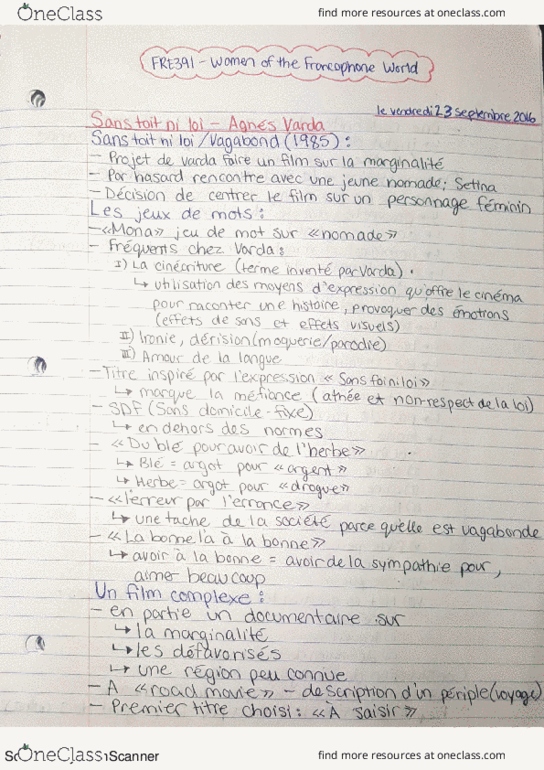 OneClass
find more resources at oneclass.com
FRE391 - Women of the Francophone World
le vendredi 23 septembre 2016
Sans toit ni loi - Agnés Varda
Sans toit ni loi/Vagabond (1985) :
- Projet de Varda faire un film sur la marginalité
- Par hasard rencontre avec une jeune nomade; Setina
- Décision de centrer le film sur un personnage féminin
Les jeux de mots :
- «Mona» jeu de mot sur «nomade»
- Fréquents chez Varda :
I) La cinécriture (terme inventé par Varda)
↳ utilisation des moyens d'expression qu'offre le cinéma
pour raconter une histoire, provoquer des émotions
(effets de sons et effets visuels)
II) Ironie, dérision (moquerie/parodie)
III) Amour de la langue
- Titre inspiré par l'expression «Sans foi ni loi»
↳ marque la méfiance (athée et non-respect de la loi)
- SDF (Sans domicile fixe)
↳ en dehors des normes
- «Du blé pour avoir de l'herbe»
↳ Blé = argot pour «argent»
↳ Herbe = argot pour «drogue»
- «l'erreur par l'errance»
↳ une tache de la société parce qu'elle est vagabonde
- «La bonne l'a à la bonne»
↳ avoir à la bonne = avoir de la sympathie pour,
aimer beaucoup
Un film complexe :
- en partie un documentaire sur
↳ la marginalité
↳ les défavorisés
↳ une région peu connue
- A «road movie» - description d'un périple (voyage)
- Premier titre choisi : «À saisir»
OneClass
Scanner
find more resources at oneclass.com